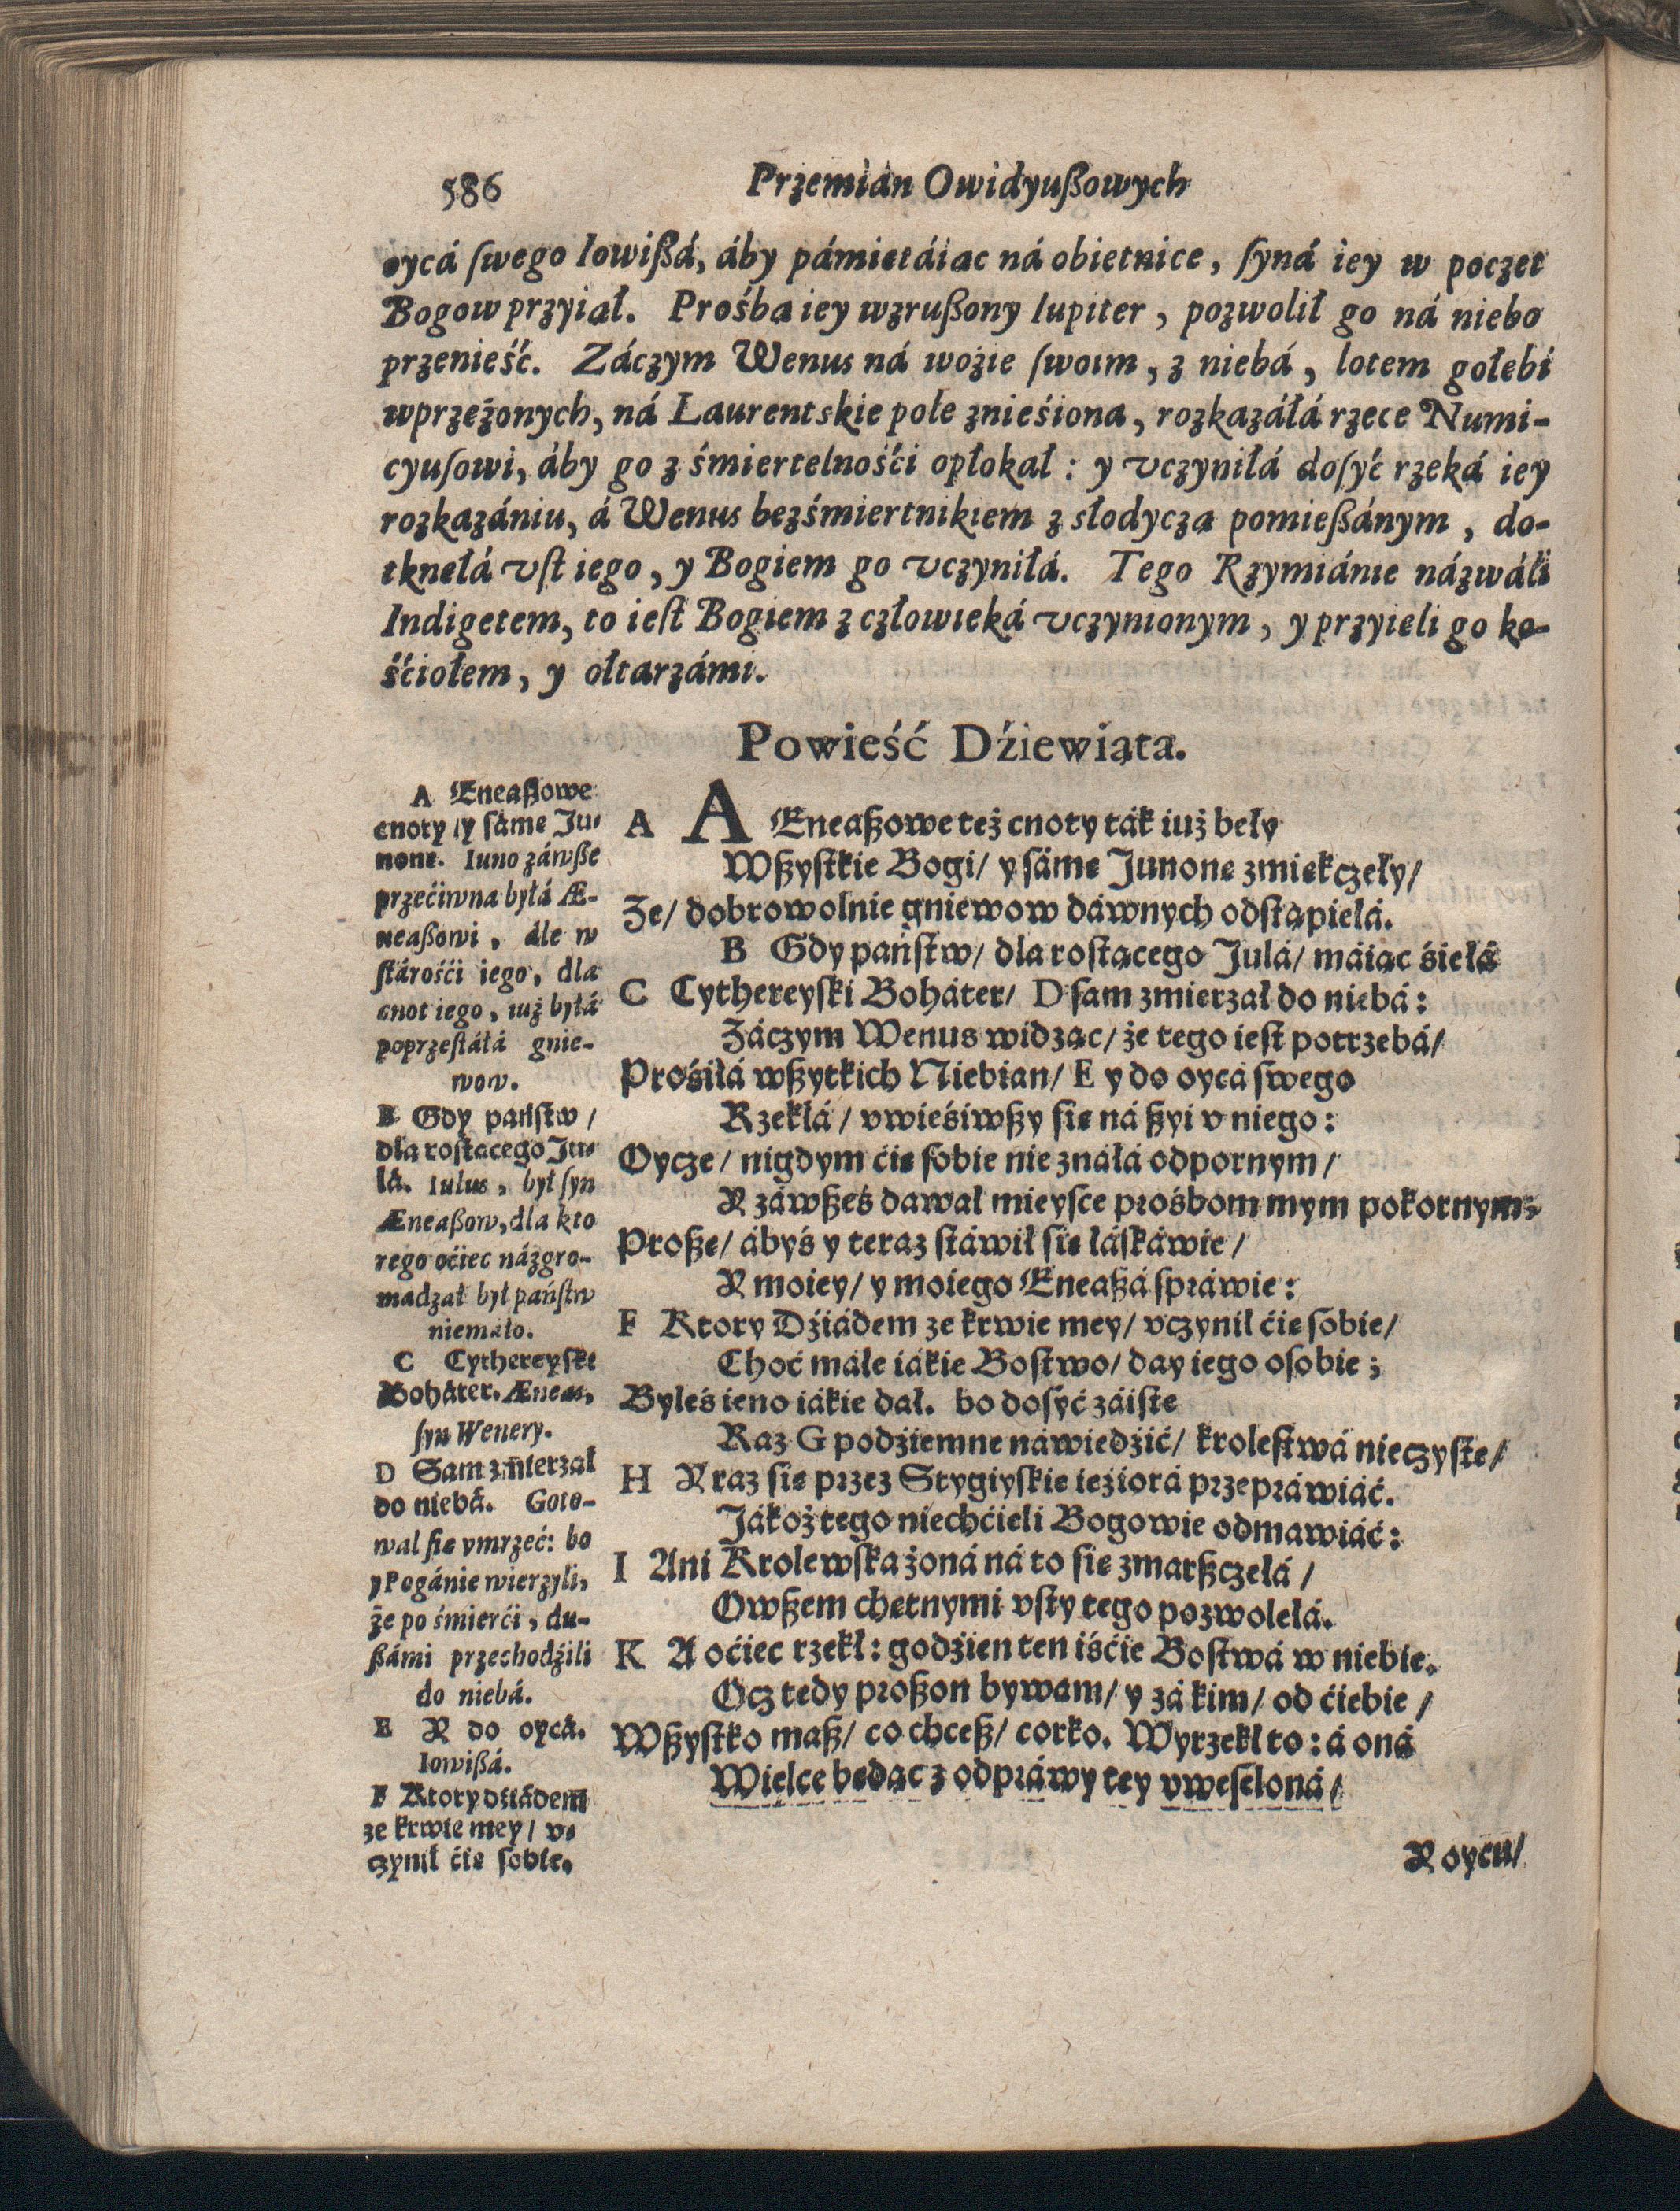 586
Przemián Owidyußowych
oycá ſwego Iowißá, áby pámiętáiąc ná obietnice, ſyná iey w poczet
Bogow przyiął. Prośbą iey wzrußony Iupiter, pozwolił go ná niebo
przenieść. Záczym Wenus ná woźie ſwoim, z niebá, lotem gołębi
wprzężonych, ná Laurentskie pole znieśiona, rozkazáłá rzece Numi-
cyuſowi, áby go z śmiertelnośći opłokał: y vczyniłá doſyć rzeká iey
rozkazániu, á Wenus bezśmiertnikiem z słodyczą pomießánym, do-
tknęłá vſt iego, y Bogiem go vczyniłá. Tego Rzymiánie názwáli
Indigetem, to ieſt Bogiem z człowieká vczynionym, y przyięli go ko-
śćiołem, y ołtarzámi.
Powieść Dźiewiąta.
A Eneaßowe
cnoty/ y ſámę Ju-
nonę. Iuno záwße
przećiwna byłá Æ-
neaßowi, ále w
ſtárośći iego, dla
cnot iego, iuż byłá
poprzeſtáłá gnie-
wow.
B Gdy państw/
dla roſtącego Ju-
lá. Iulus, był ſyn
Æneaßow, dla kto
rego oćiec názgro-
madzał był państw
niemáło.
C Cythereyſki
Boháter. Æneas,
ſyn Wenery.
D Sam zmierzał
do niebá. Goto-
wał ſię vmrzeć: bo
y Pogánie wierzyli,
że po śmierći, du-
ßámi przechodźili
do niebá.
E Y do oycá.
Iowißá.
F Ktory dźiádem
ze krwie mey/ v-
czynił ćię ſobie.
A AEneaßowe też cnoty ták iuż beły
Wßyſtkie Bogi/ y ſámę Junonę zmiękczeły/
Że/ dobrowolnie gniewow dáwnych odſtąpiełá.
B Gdy państw/ dla roſtącego Julá/ máiąc śiełá
C Cythereyſki Boháter/ D ſam zmierzał do niebá:
Záczym Wenus widząc/ że tego ieſt potrzebá/
Prośiłá wßytkich Niebian/ E y do oycá ſwego
Rzekłá/ vwieśiwßy ſię ná ßyi v niego:
Oycze/ nigdym ćię ſobie nie znáłá odpornym/
Y záwßeś dawał mieyſce prośbom mym pokornym:
Proßę/ ábyś y teraz ſtáwił ſię łáſkáwie/
Y moiey/ y moiego Eneaßá ſpráwie:
F Ktory Dźiádem ze krwie mey/ vczynił ćię ſobie/
Choć máłe iákie Boſtwo/ day iego oſobie;
Byleś ieno iákie dał. bo doſyć záiſte
Raz G podźiemne náwiedźić/ kroleſtwá nieczyſte/
H Y raz ſię przez Stygiyſkie ieźiorá przepráwiáć.
Jákoż tego niechćieli Bogowie odmawiáć:
I Ani Krolewſka żoná ná to ſię zmarßczełá/
Owßem chętnymi vſty tego pozwolełá.
K A oćiec rzekł: godźien ten iśćie Boſtwá w niebie.
Ocz tedy proßon bywam/ y zá kim/ od ćiebie/
Wßyſtko maß/ co chceß/ corko. Wyrzekł to: á oná
Wielce będąc z odpráwy tey vweſeloná/
Y oycu/